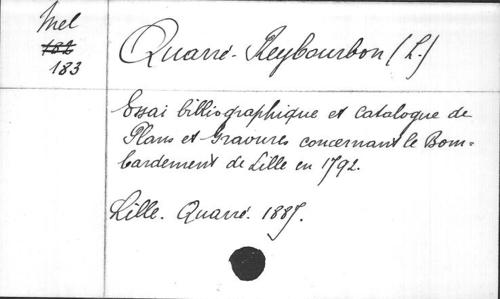 Mel
182
183
Quarré-Reybourbon (L.)
Essai bibliographique et catalogue de
Plans et Gravures concernant le Bom=
bardement de Lille en 1792.
Lille. Quarré. 1887.